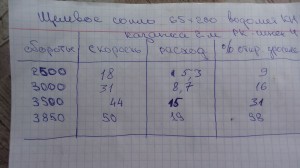 Щелевое сопло 65×200 водомет
казанка 2м
обороты скорость расход % откр
2500 18 5,3 9
3000 31 8,7 16
3500 44 15 31
3850 50 19 38